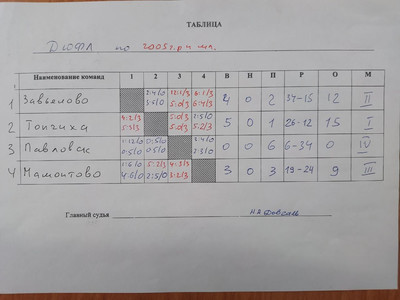 ТАБЛИЦА
ДЮФЛ по 2005 г.р и мл.
Наименование команд 1 2 3 4 В Н П Р О М
2:4/0 12:1/3 6:1/3
1 Завьялово 3:5/0 5:0/3 6:4/3 4 0 2 34-15 12 II
4:2/3 5:0/3 1:5/0
2 Топчиха 5:3/3 5:0/3 5:2/3 5 0 1 26-12 15 I
1:12/0 0:5/0 3:4/0
3 Павловск 0:5/0 0:5/0 2:3/0 0 0 6 6-34 0 IV
1:6/0 5:2/3 4:3/3
4 Мамонтово 4:6/0 2:5/0 3:2/3 3 0 3 19-24 9 III
Главный судья